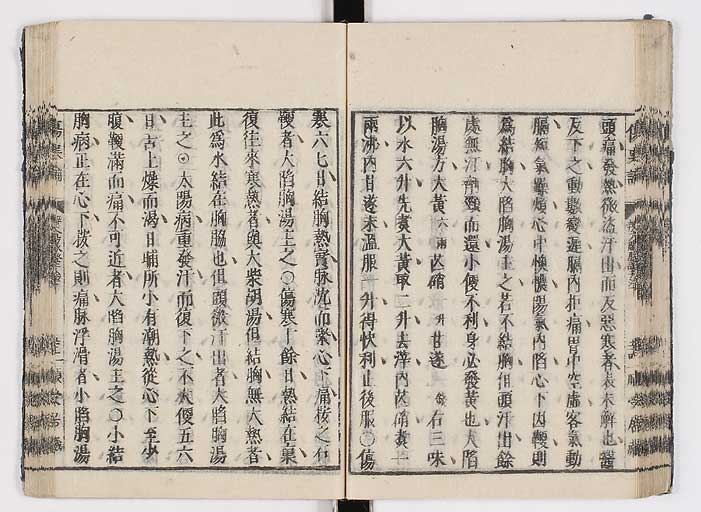 頭痛發熱微盜汗出而反惡寒者表未解也醫
反下之動數變遲膈內拒痛胃中空虛客氣動
膈短氣躁煩心中懊憹陽氣內陷心下因鞕則
爲結胸大陷胸湯主之若不結胸但頭汗出餘
處無汗劑頸而還小便不利身必發黃也大陷
胸湯方大黃六兩芒硝一升甘遂一錢右三味
以水六升先煮大黃取二升去滓內芒硝煮一
兩沸內甘遂末溫服一升得快利止後服○傷
寒六七日結胸熱實脉沈而緊心下痛按之石
鞕者大陷胸湯主之○傷寒十餘日熱結在裏
復往來寒熱者與大柴胡湯但結胸無大熱者
此爲水結在胸脇也但頭微汗出者大陷胸湯
主之○太陽病重發汗而復下之不大便五六
日舌上燥而渴日晡所小有潮熱從心下至少
腹鞕滿而痛不可近者大陷胸湯主之○小結
胸病正在心下按之則痛脉浮滑者小陷胸湯